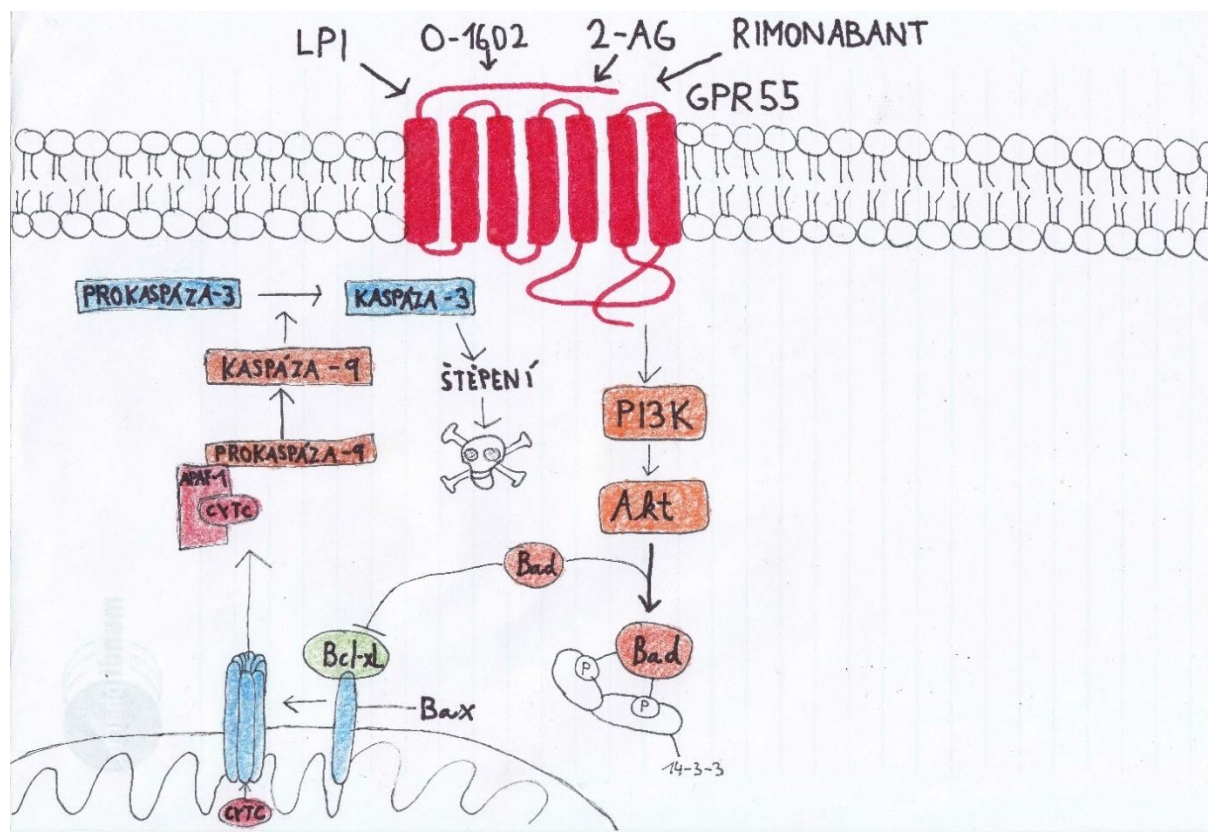 LPI
O-1602
2-AG
RIMONABANT
GPR55
PROKASPÁZA-3
KASPÁZA-3
KASPÁZA-9
ŠTĚPENÍ
PI3K
PROKASPÁZA-9
APAF-1
CYTC
Akt
Bad
Bcl-xL
Bad
P
P
Bax
14-3-3
CYTC